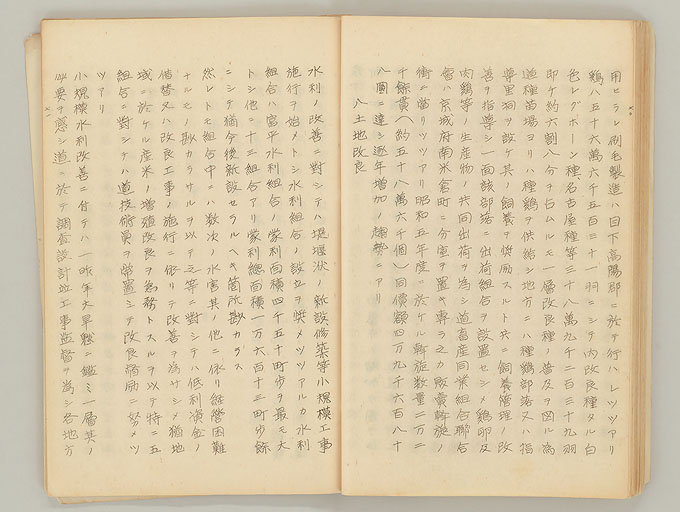 用ヒラレ刷毛製造ハ目下高陽郡ニ於テ行ハレツツアリ
鷄ハ五十六萬六千五百三十一羽ニシテ內改良種タル白
色レグホーン種名古屋種等三十八萬九千二百三十九羽
卽チ約六割八分ヲ占ムルモ一層改良種ノ普及ヲ図ル爲
道種苗場ヨリハ種鷄ヲ供給シ地方ニハ種鷄部落又ハ指
導里洞ヲ設ケ其ノ飼養ヲ奬励スルト共ニ飼養管理ノ改
善ヲ指導シ一面該部落ニ出荷組合ヲ設置セシメ鷄卵及
肉鷄等ノ生産物ノ共同出荷ヲ爲シ道畜産同業組合聯合
會ハ京城府南米倉町ニ分室ヲ置キ專ラ之カ販賣斡旋ノ
衝ニ當リツツアリ昭和五年度ニ於ケル斡旋数量二万二
千餘貫(約五十八萬六千個)同價額四万九千六百八十
八圓ニ達シ逐年增加ノ趨勢ニアリ
八土地改良
水利ノ改善ニ對シテハ堤堰洑ノ新設修築等小規模工事
施行ヲ始メトシ水利組合ノ設立ヲ奬メツツアルカ水利
組合ハ富平水利組合ノ蒙利面積四千五十町歩ヲ最モ大
トシ他ニ十三組合アリ蒙利總面積一万六百十三町歩餘
ニシテ猶今後新設セラルヘキ箇所尠カラス
然レトモ組合中ニハ数次ノ水害其ノ他ニ依リ維營困難
ナルモノ尠カラサルヲ以テ之等ニ對シテハ低利資金ノ
借替又ハ改良工事ノ施行ニ依リテ改善ヲ爲サシメ猶地
域ニ於ケル産米ノ增殖改良ヲ急務トスルヲ以テ特ニ五
組合ニ對シテハ道技術員ヲ常置シテ改良奬励ニ努メツ
ツアリ
小規模水利改善ニ付テハ一昨年大旱魃ニ鑑ミ一層其ノ
必要ヲ感シ道ニ於テ調査設計竝工事監督ヲ爲シ各地方